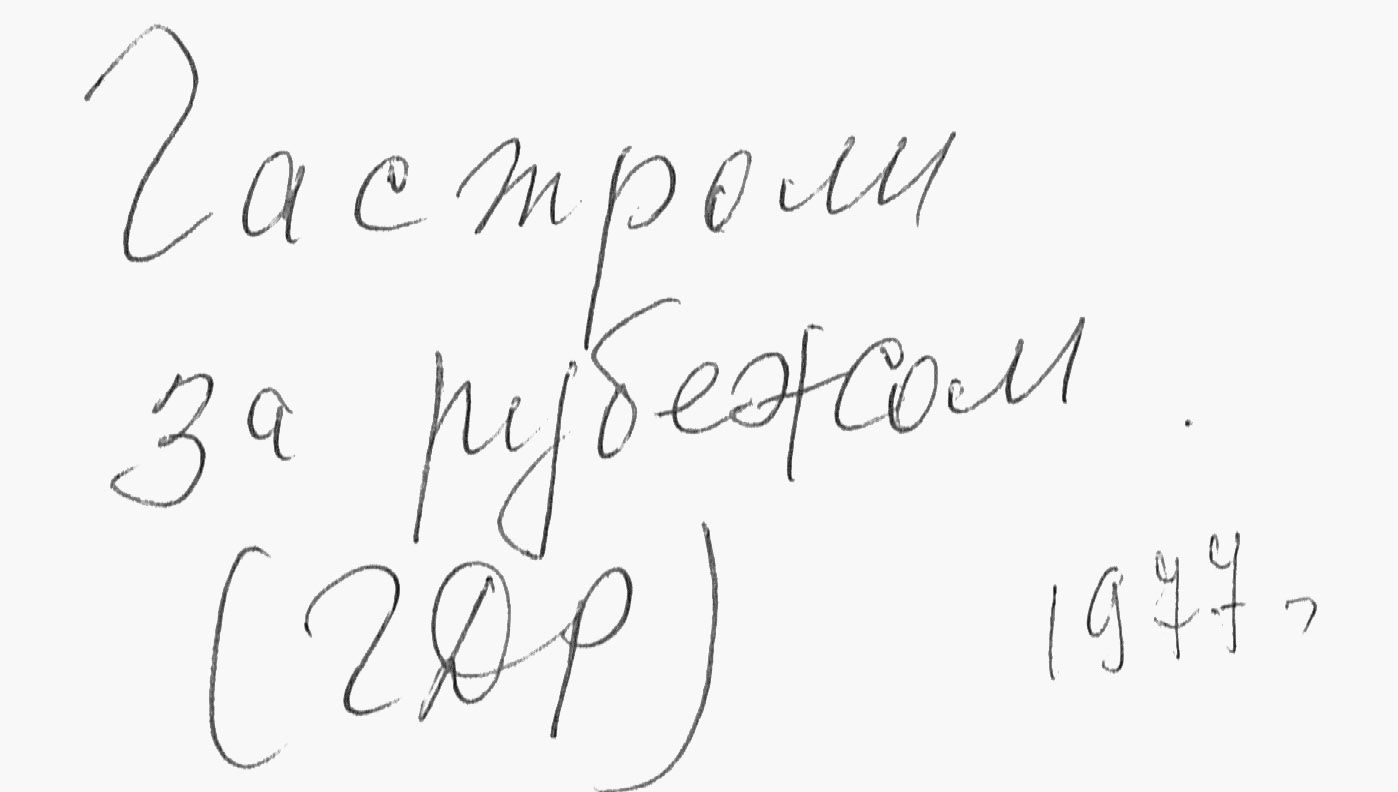 Гастроли
за рубежом.
(ГДР) 1977г